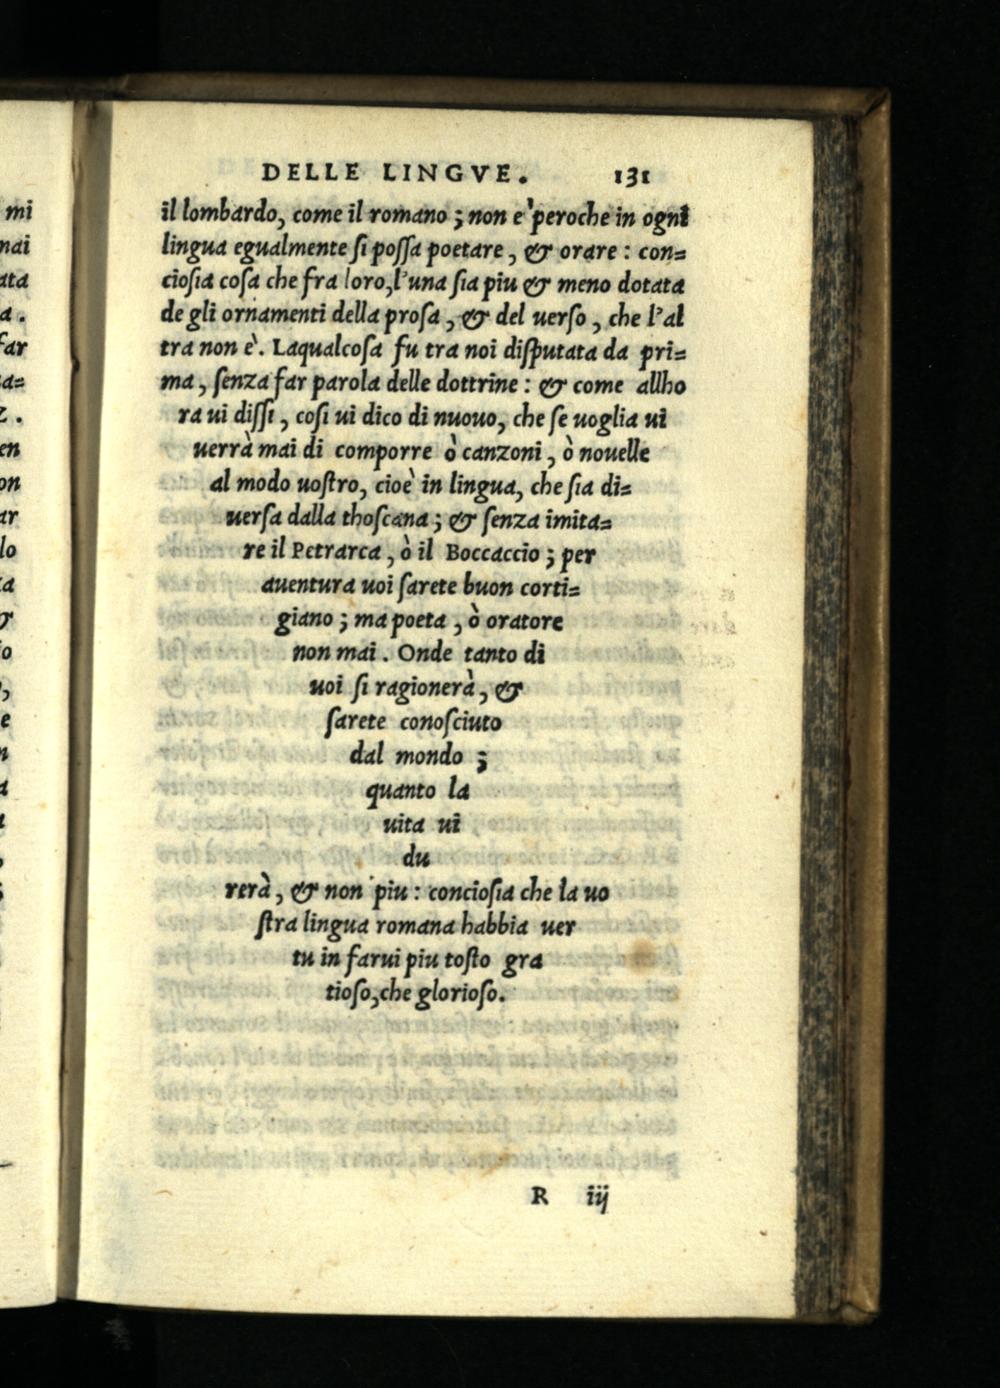 DELLE LINGVE. 131
il lombardo, come il romano; non e' peroche in ogni
lingua egualmente si possa poetare, & orare: con=
ciosia cosa che fra loro, l'una sia piu & meno dotata
de gli ornamenti della prosa, & del uerso, che l'al
tra non è. Laqualcosa fu tra noi disputata da pri=
ma, senza far parola delle dottrine: & come allho
ra ui dissi, cosi ui dico di nuouo, che se uoglia ui
uerrà mai di comporre ò canzoni, ò nouelle
al modo uostro, cioè in lingua, che sia di=
uersa dalla thoscana; & senza imita=
re il Petrarca, ò il Boccaccio; per
auentura uoi sarete buon corti=
giano; ma poeta, ò oratore
non mai. Onde tanto di
uoi si ragionerà, &
sarete conosciuto
dal mondo;
quanto la
uita ui
du
rerà, & non piu: conciosia che la uo
stra lingua romana habbia uer
tu in farui piu tosto gra
tioso, che glorioso.
R iij
mi
nai
ata
a.
far
za=
z.
en
on
ar
lo
za
&
io
e